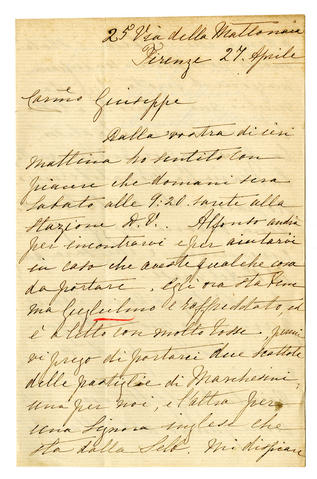 25 Via della Mattonaia
Firenze 27 Aprile
Carino Giuseppe
Dalla vostra di ieri
mattina ho sentito con
piacere che domani sera
Sabato alle 9:20 sarete alla
stazione D.V. Alfonso andrà
per incontrarvi e per aiutarvi
in caso che aveste qualche cosa
da portare, egli ora sta bene
ma Guglielmo è raffreddato, ed
è a letto con molto tosse,
vi prego di portarci due scattole
delle pastiglie di Marchesini,
una per noi, e l'altra per
una Signora inglese che
sta dalla Mi dispiace